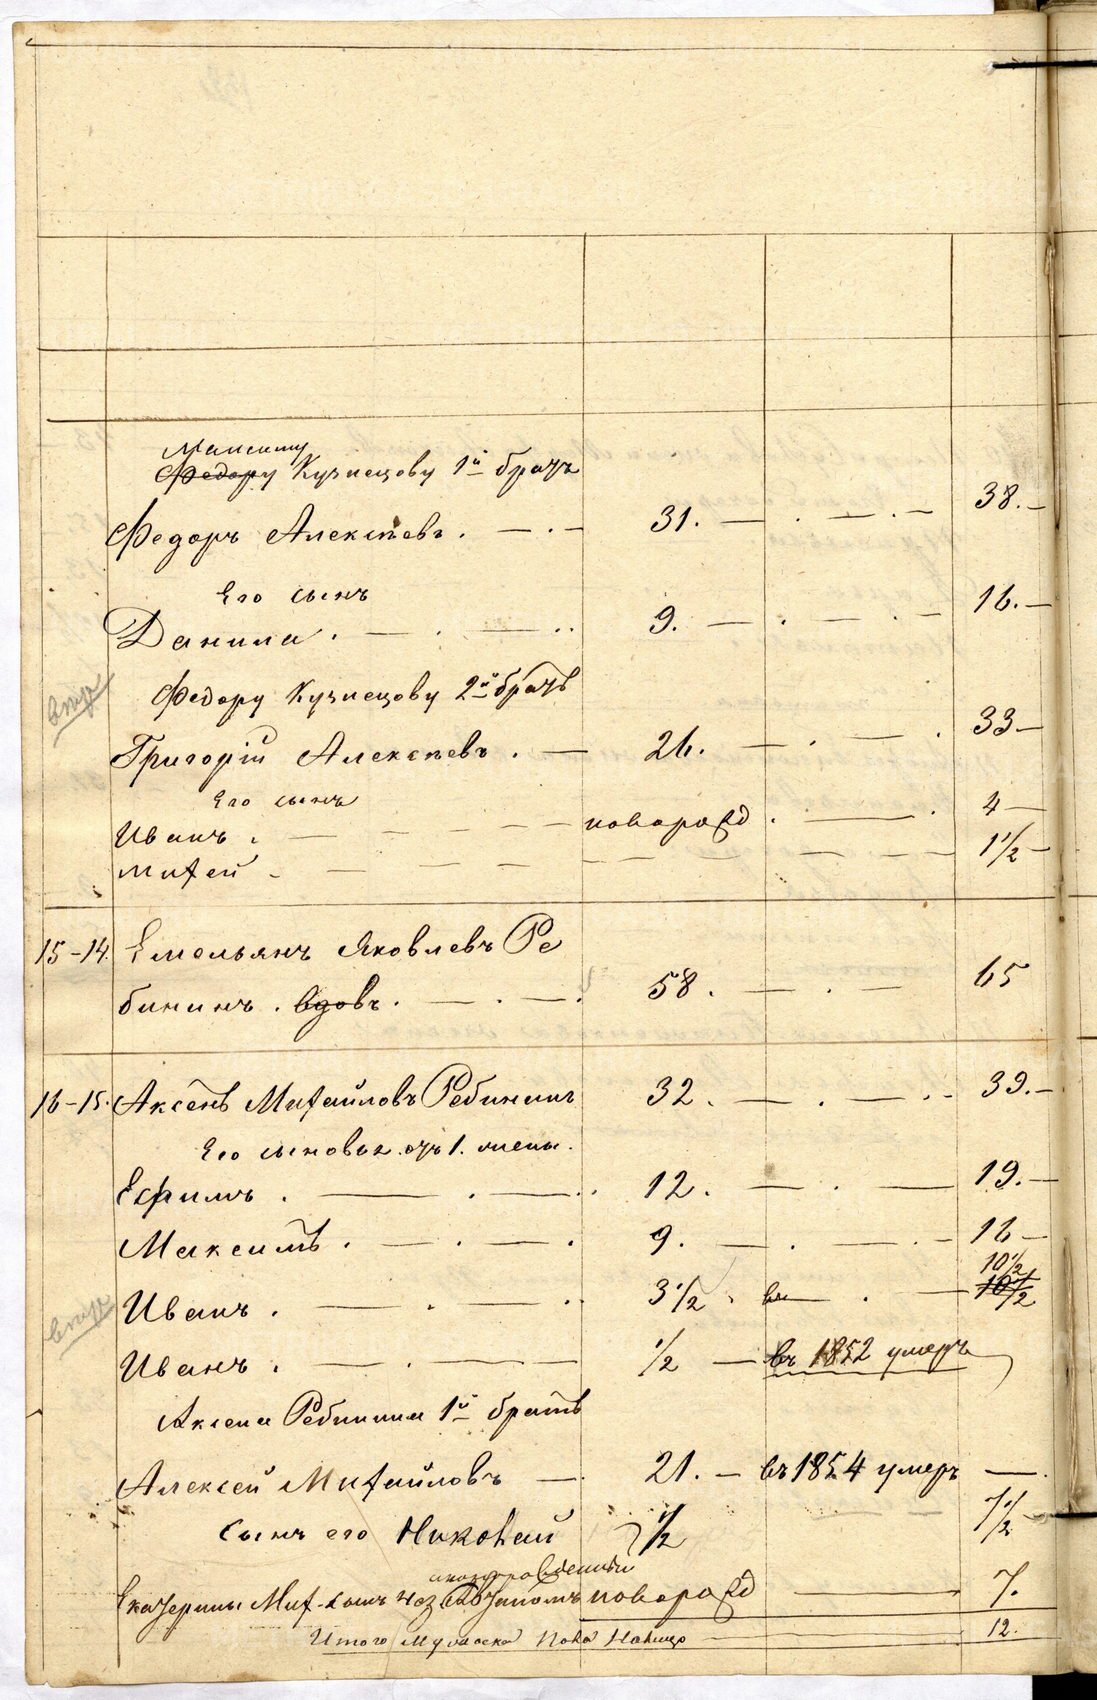 Максиму
Федору Кузнецову 1й братъ
Федоръ Алексѣевъ . — . — 31. — . — . — 38. —
Его сынъ
Данила . — . — . . 9. — . — . — 16. —
Федору Кузнецову 2й братъ
Григорій Алексѣевъ . — 26. — . — . 33 —
Его сынъ
Иванъ . — — — — новорожд . — . 4 —
Михей - — — — — — — 1 1/2 —
15-14. Емельянъ Яковлевъ Ре
бининъ . вдовъ . — . — . 58 . — . — 65
16-15. Аксенъ Михайловъ Ребининъ 32 . — . — . . 39. —
Его сыновья отъ 1. жены.
Ефимъ . — . — . . 12 . — . — 19. —
Максимъ . — . — . 9. — . — . — 16 —
10 1/2
Иванъ . — . — . . 3 1/2 . въ — . — 10 1/2
Иванъ . — . — 1/2 — въ 1852 умеръ
Аксена Ребинина 1й братъ
Алексей Михайловъ — . 21. — въ 1854 умеръ — .
сынъ его Николай 1/2 7 1/2 -
Екатерины Мих. сынъ новорожд — 7.
Итого Мужеска Пола На лицо — 12.